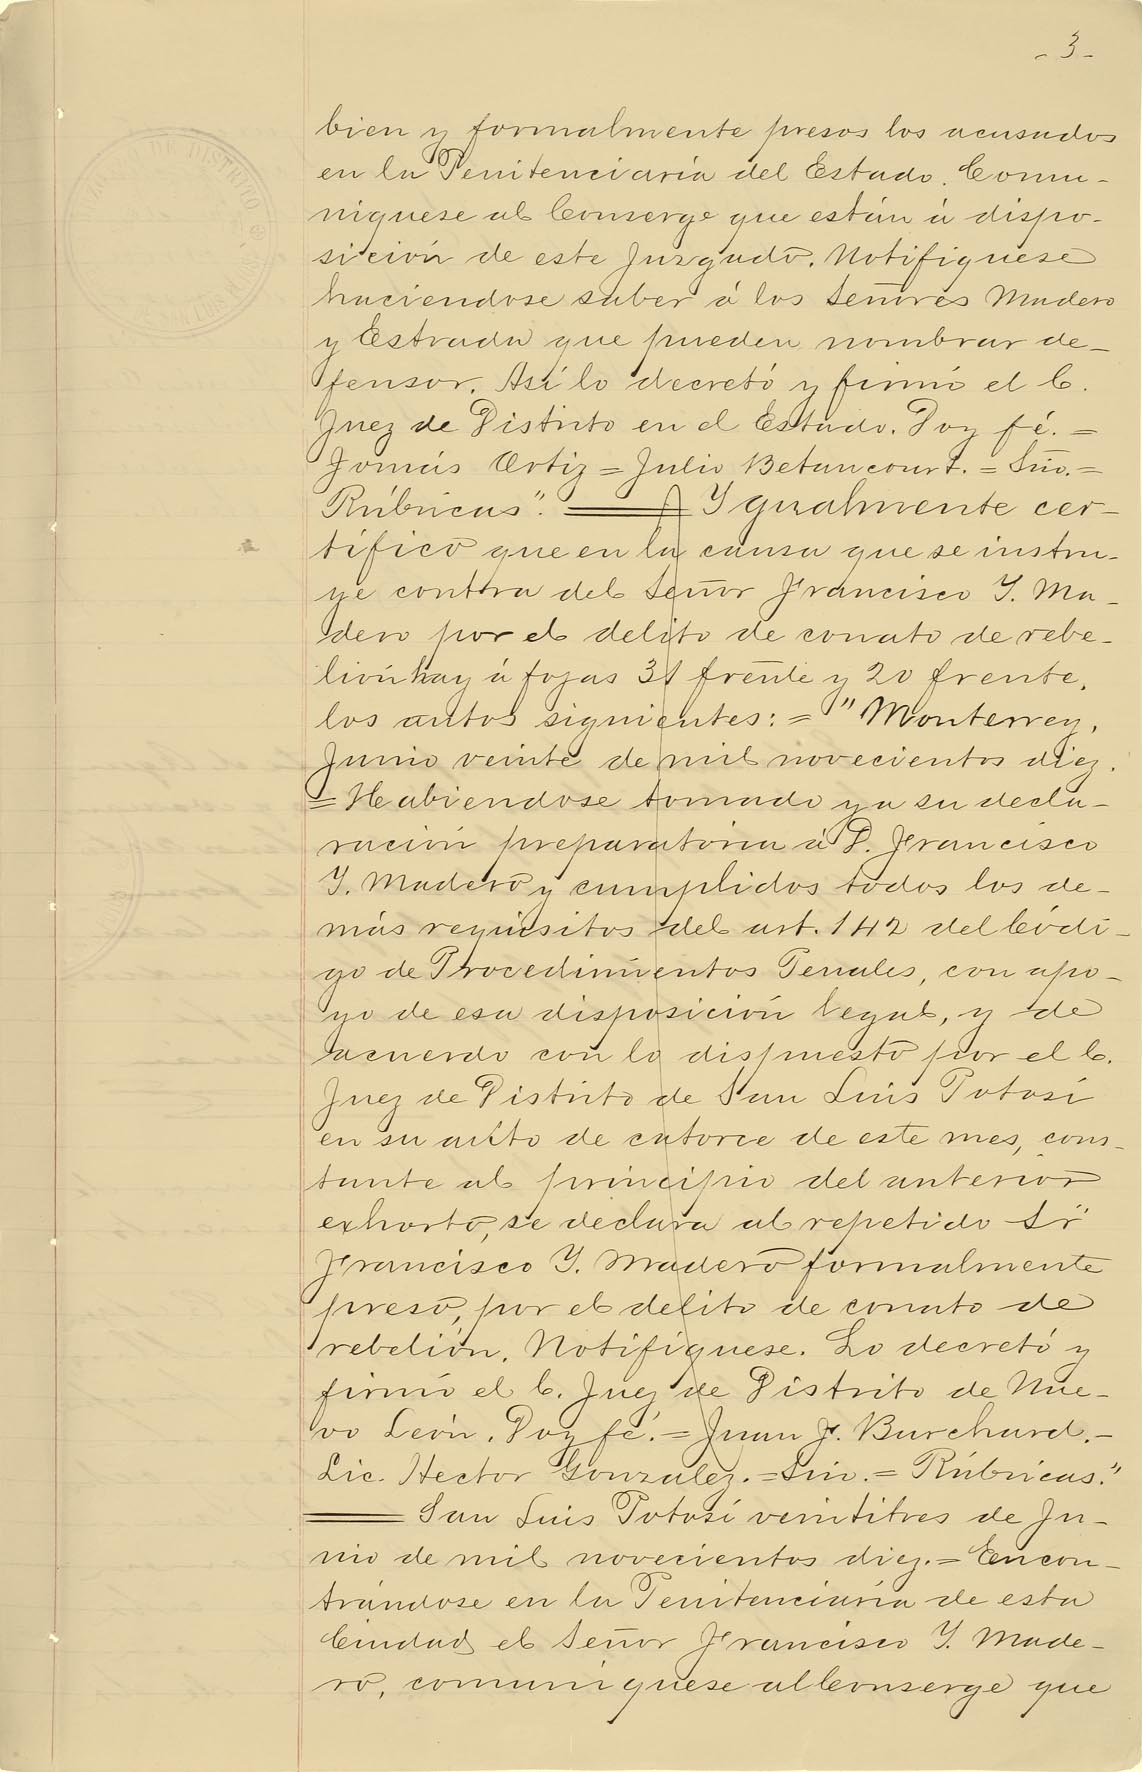 - 3 -
bien y formalmente presos los acusados
en la Penitenciaría del Estado. Comu-
níquese al Conserge que están á dispo-
sición de este Juzgado. Notifíquese
haciendose saber á los Señores Madero
y Estrada que pueden nombrar de-
fensor. Así lo decretó y firmó el C.
Juez de Distrito en el Estado. Doy fé. =
Tomás Ortiz = Julio Betancourt. = Srio. =
Rúbricas". ═══ Ygualmente cer-
tifico que en la causa que se instru-
ye contra del Señor Francisco Y. Ma-
dero por el delito de conato de rebe-
lión hay á fojas 31 frente y 20 frente,
los autos siguientes: = "Monterrey,
Junio veinte de mil novecientos diez.
= Habiendose tomado ya su decla-
ración preparatoria á D. Francisco
Y. Madero y cumplidos todos los de-
más requisitos del art. 142 del Códi-
go de Procedimientos Penales, con apo-
yo de esa disposición legal, y de
acuerdo con lo dispuesto por el C.
Juez de Distrito de San Luis Potosí
en su auto de catorce de este mes, cons-
tante al principio del anterior
exhorto, se declara al repetido Sr
Francisco Y. Madero formalmente
preso, por el delito de conato de
rebelión. Notifíquese. Lo decretó y
firmó el C. Juez de Distrito de Nue-
vo León. Doy fé. = Juan J. Burchard. -
Lic. Hector Gonzalez. = Srio. = Rúbricas."
═══ San Luis Potosí veintitres de Ju-
nio de mil novecientos diez. = Encon-
trándose en la Penitenciaría de esta
Ciudad el Señor Francisco Y. Made-
ro, comuníquese al Conserge que
DISTRITO